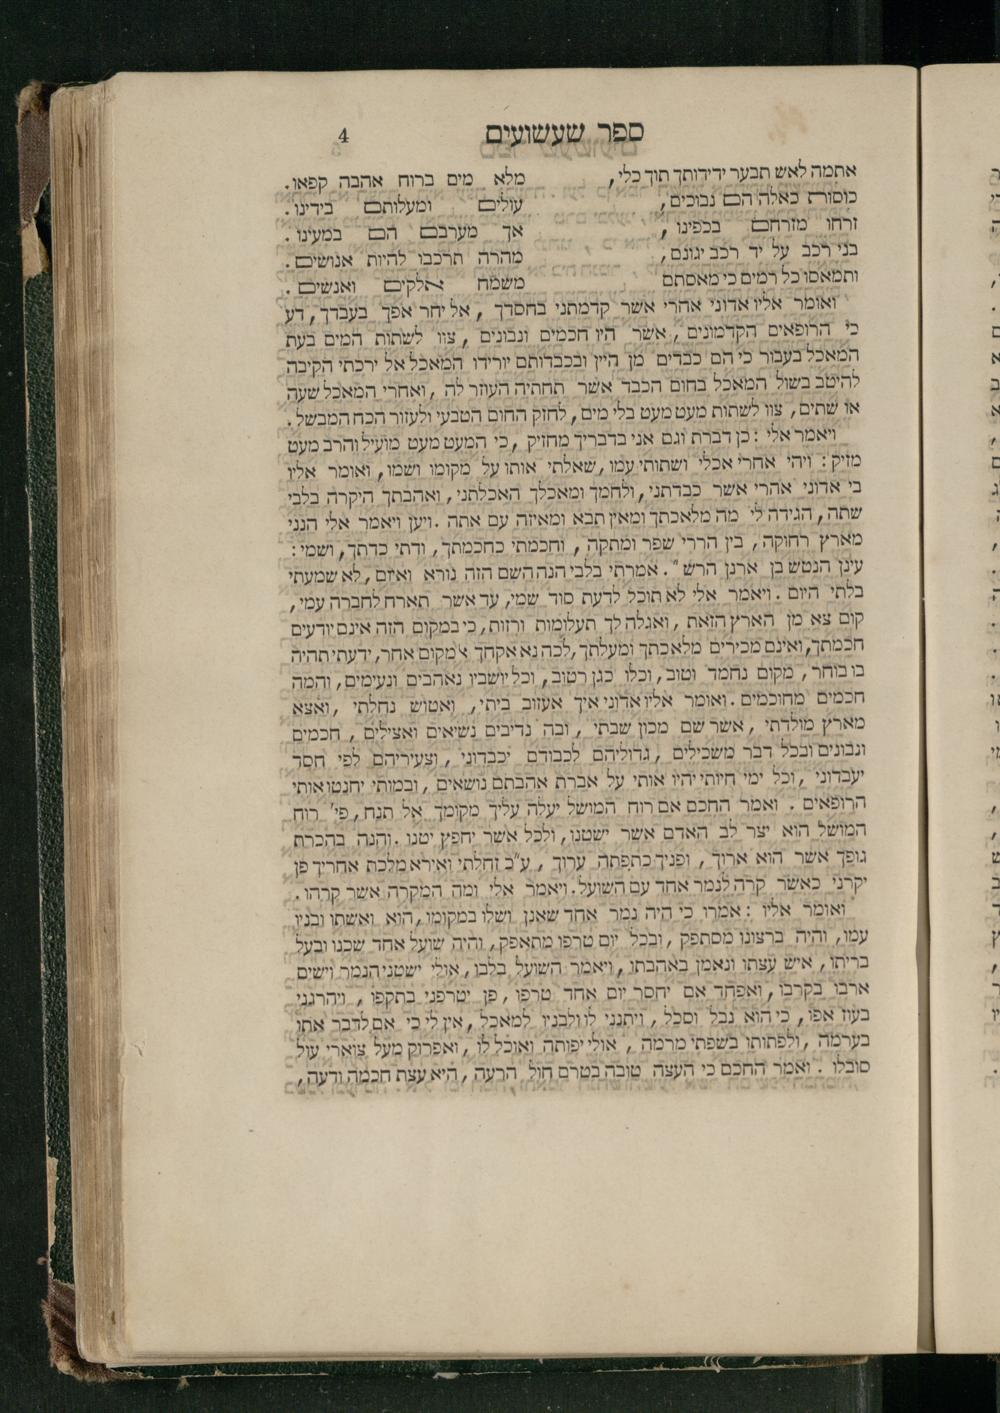 ספר שעשועים 4
אתמה לאש תבער ידידותך תוך כלי, מלא מים ברוח אהבה קפאו.
כוסות כאלה הם נבוכים, עולים ומעלותם בידינו.
זרחו מזרחם בכפינו, אך מערבם הם במעינו.
בני רכב על יד רכב יגונם, מהרה תרכבו להיות אנושים.
ותמאסו כל רמים כי מאסתם משמח אלקים ואנשים.
ואומר אליו אדוני אחרי אשר קדמתני בחסדך, אל יחר אפך בעבדך, דע
כי הרופאים הקדמונים, אשר היו חכמים ונבונים, צוו לשתות המים בעת
המאכל בעבור כי הם כבדים מן היין ובכבדותם יורידו המאכל אל ירכתי הקיבה
להיטב בשול המאכל בחום הכבד אשר תחתיה העוזר לה, ואחרי המאכל שעה
או שתים, צוו לשתות מעט מעט בלי מים, לחזק החום הטבעי ולעזור הכח המבשל.
ויאמר אלי: כן דברת וגם אני בדבריך מחזיק, כי המעט מעט מועיל והרב מעט
מזיק: ויהי אחרי אכלי ושתותי עמו, שאלתי אותו על מקומו ושמו, ואומר אליו
בי אדוני אחרי אשר כבדתני, ולחמך ומאכלך האכלתני, ואהבתך היקרה בלבי
שתה, הגידה לי מה מלאכתך ומאין תבא ומאיזה עם אתה. ויען ויאמר אלי הנני
מארץ רחוקה, בין הררי שפר ומתקה, וחכמתי כחכמתך, ודתי כדתך, ושמי:
עינן הנטש בן ארנן הדש". אמרתי בלבי הנה השם הזה נורא ואיום, לא שמעתי
בלתי היום. ויאמר אלי לא תוכל לדעת סוד שמי, עד אשר תארח לחברה עמי,
קום צא מן הארץ הזאת, ואגלה לך תעלומות ורזות, כי במקום הזה אינם יודעים
חכמתך, ואינם מכירים מלאכתך ומעלתך, לכה נא אקחך אל מקום אחר, ידעתי תהיה
בו בוחר, מקום נחמד וטוב, וכלו כגן רטוב, וכל יושביו נאהבים ונעימים, והמה
חכמים מחוכמים. ואומר אליו אדוני איך אעזוב ביתי, ואטוש נחלתי, ואצא
מארץ מולדתי, אשר שם מכון שבתי, ובה נדיבים נשיאים ואצילים, חכמים
ונבונים ובכל דבר משכילים, גדוליהם לכבודם יכבדוני, וצעיריהם לפי חסד
יעבדוני, וכל ימי חיותי יהיו אותי על אברת אהבתם נושאים, ובמותי יחנטו אותי
הרופאים. ואמר החכם אם רוח המושל יעלה עליך מקומך אל תנח, פי' רוח
המושל הוא יצר לב האדם אשר ישטנו, ולכל אשר יחפץ יטנו. והנה בהכרת
גופך אשר הוא ארוך, ופניך כתפתה ערוך, ע"כ זחלתי ואירא מלכת אחריך פן
יקרני כאשר קרה לנמר אחד עם השועל. ויאמר אלי ומה המקרה אשר קרהו.
ואומר אליו: אמרו כי היה נמר אחד שאנן ושלו במקומו, הוא ואשתו ובניו
עמו, והיה ברצונו מסתפק, ובכל יום טרפו מתאפק, והיה שועל אחד שכנו ובעל
בריתו, איש עצתו ונאמן באהבתו, ויאמר השועל בלבו, אולי ישטני הנמר וישים
ארבו בקרבו, ואפחד אם יחסר יום אחד טרפו, פן יטרפני בתקפו, ויהרגני
בעוז אפו, כי הוא נבל וסכל, ויתנני לו ולבניו למאכל, אין לי כי אם לדבר אתו
בערמה, ולפתותו בשפתי מרמה, אולי יפותה ואוכל לו, ואפרוק מעל צוארי עול
סובלו. ואמר החכם כי העצה טובה בטרם חול הרעה, היא עצת חכמה ודעה,